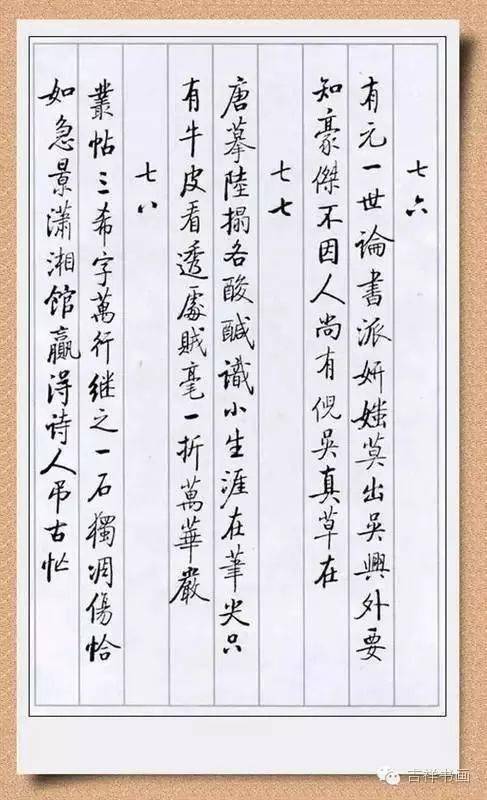 七六
有元一世論書派妍媸莫出吳興外要
知豪傑不因人尚有倪吳真草在
七七
唐摹陸搨各酸鹹識小生涯在筆尖只
有牛皮看透處賊毫一折萬華嚴
七八
叢帖三希字萬行继之一石獨凋傷恰
如急景潇湘館贏得诗人吊古忙
吉祥书画